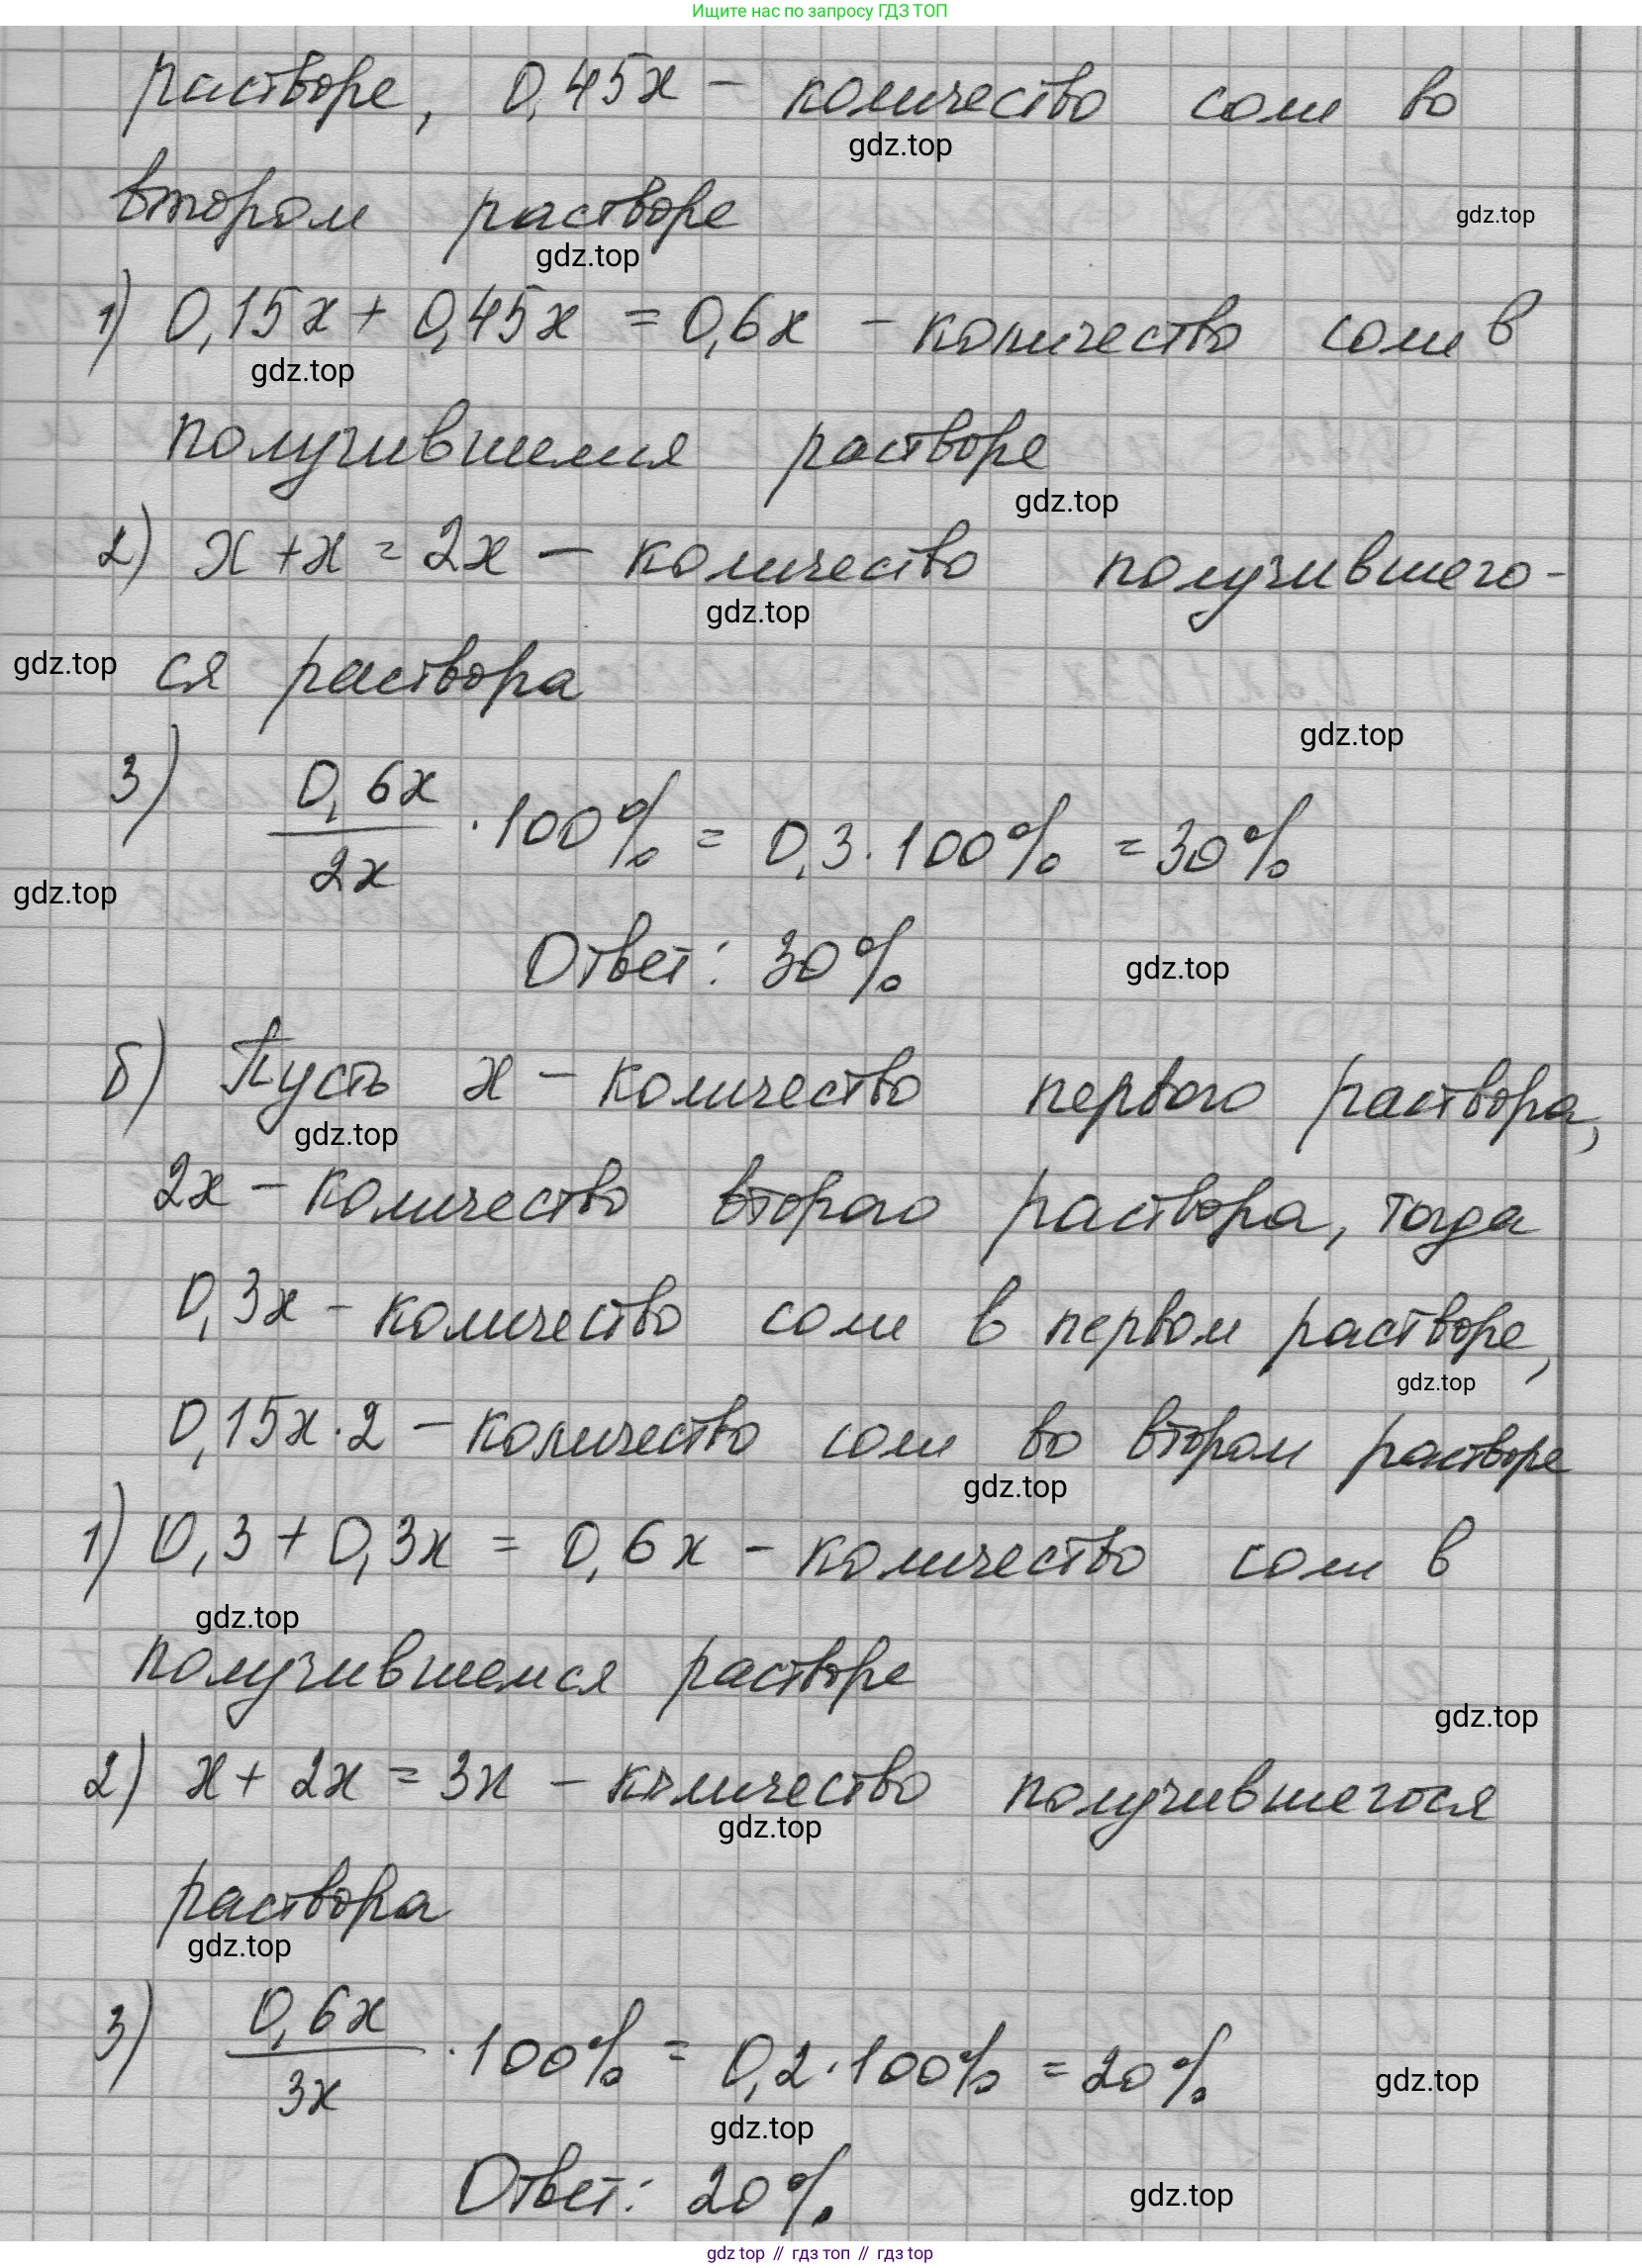 Ищите нас по запросу ГДЗ ТОП
растворе, 0,45x – количество соли во
gdz.top
втором растворе
gdz.top
gdz.top
1) 0,15x + 0,45x = 0,6x – количество соли в
gdz.top
получившемся растворе
gdz.top
2) x + x = 2x – количество получившего-
gdz.top
gdz.top
ся раствора
gdz.top
3) 0,6x / 2x · 100% = 0,3 · 100% = 30%
gdz.top
Ответ: 30%
gdz.top
б) Пусть x – количество первого раствора,
gdz.top
2x – количество второго раствора, тогда
0,3x – количество соли в первом растворе,
gdz.top
0,15x · 2 – количество соли во втором растворе
gdz.top
1) 0,3 + 0,3x = 0,6x – количество соли в
gdz.top
получившемся растворе
gdz.top
2) x + 2x = 3x – количество получившегося
gdz.top
раствора
gdz.top
3) 0,6x / 3x · 100% = 0,2 · 100% = 20%
gdz.top
gdz.top
Ответ: 20%
gdz.top
gdz top // гдз топ // гдз top